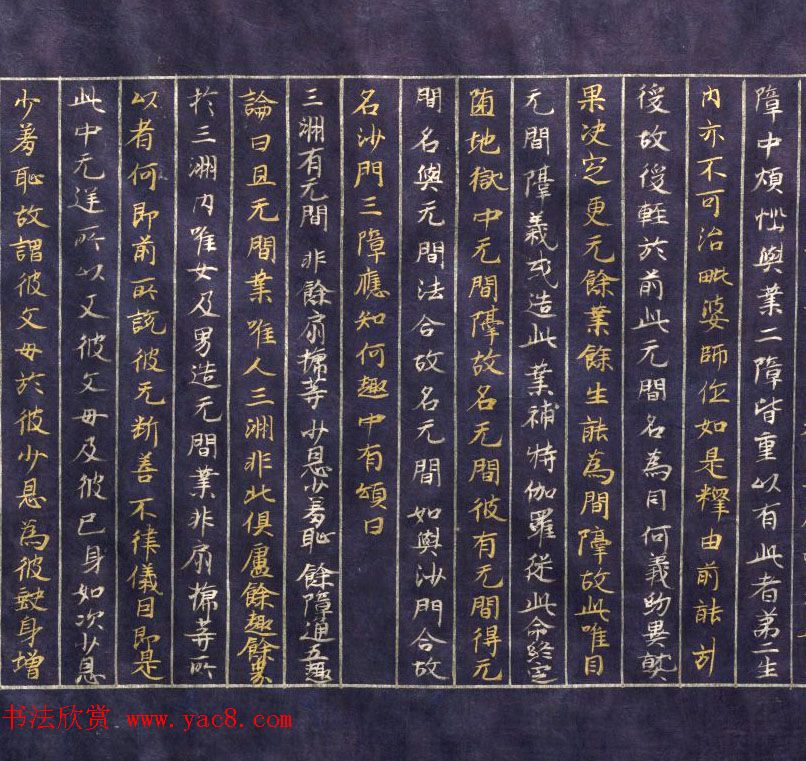 障中煩惱與業二障皆重以有此者第二生
内亦不可治毗婆師作如是釋由前能引
後故後輕於前此无間名為目何義約異熟
果決定更无餘業餘生能為間障故此唯目
无間障義或造此業補特伽羅從此命終定
墮地獄中无間隔故名无間彼有无間得无
間名與无間法合故名无間如與沙門合故
名沙門三障應知何趣中有頌曰
三洲有无間 非餘扇搋等 少恩少羞恥 餘障通五趣
論曰且无間業唯人三洲非北俱盧餘趣餘界
於三洲内唯女及男造无間業非扇搋等所
以者何即前所說彼无斷善不律儀因即是
此中无逆所以又彼父母及彼已身如次少恩
少羞恥故謂彼父母於彼少恩為彼缺身增
书法欣赏 www.yac8.com